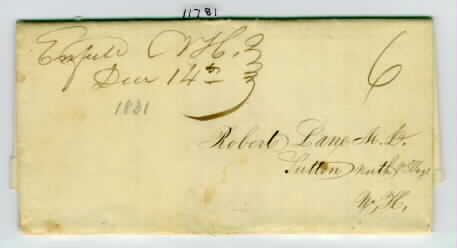 11781
Enfield N.H.
Decr 14th
6
1831
Robert Lane M.D.
Sutton North Village
N.H.